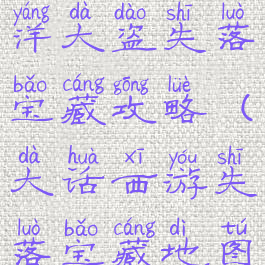 yáng dà dào shī luò
洋大盗失落
bǎo cáng gōng lüè
宝藏攻略(
dà huà xī yóu shī
大话西游失
luò bǎo cáng dì tú
落宝藏地图